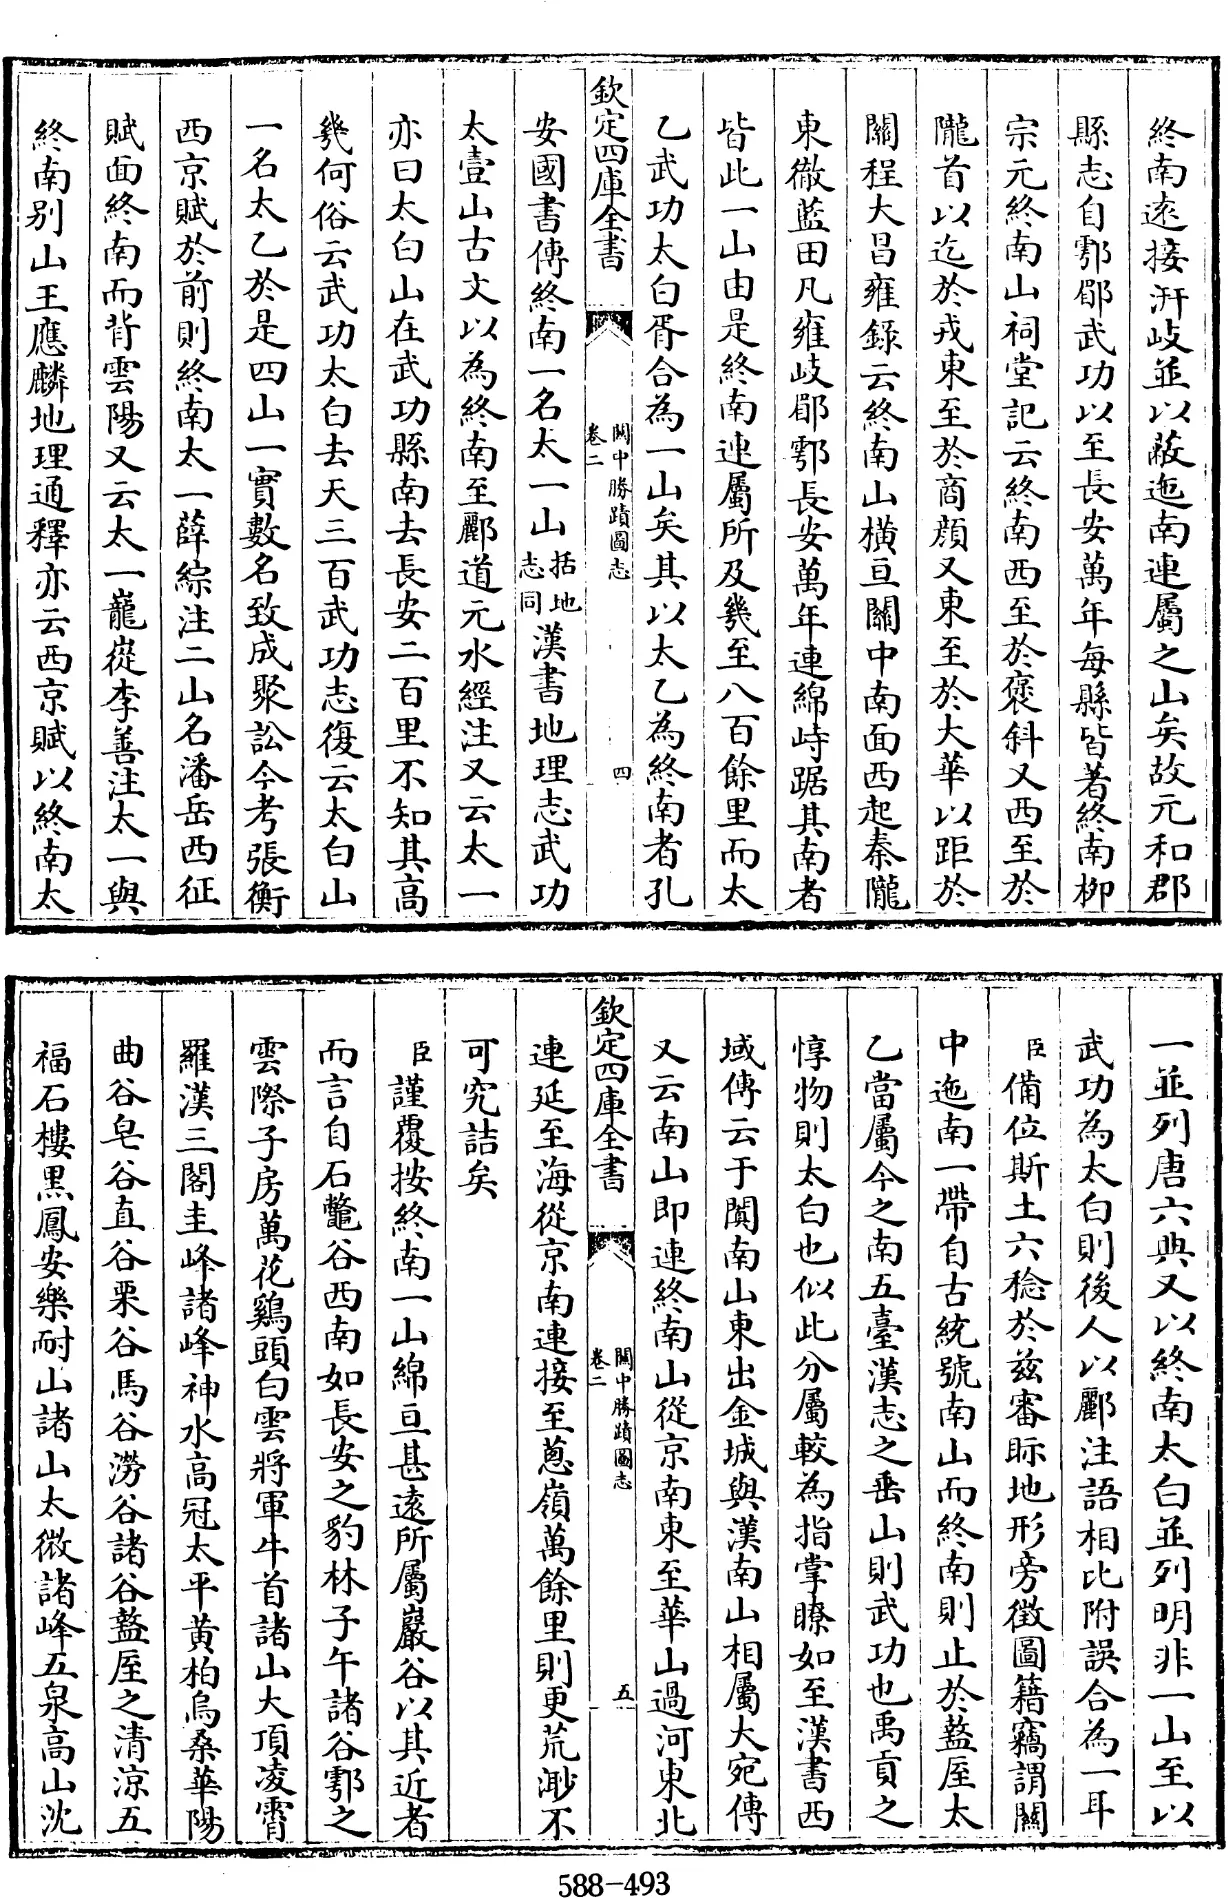 終南遠接汧岐並以蔽迤南連屬之山矣故元和郡
縣志自鄠郿武功以至長安萬年每縣皆著終南柳
宗元終南山祠堂記云終南西至於褒斜又西至於
隴首以迄於戎東至於商顔又東至於大華以距於
關程大昌雍録云終南山橫亘關中南面西起秦隴
東徹藍田凡雍岐郿鄠長安萬年連綿峙踞其南者
皆此一山由是終南連屬所及㡬至八百餘里而太
乙武功太白胥合為一山矣其以太乙為終南者孔
欽定四庫全書
關中勝蹟圖志
卷二
四
安國書傳終南一名太一山括地志同漢書地理志武功
太壹山古文以為終南至酈道元水經注又云太一
亦曰太白山在武功縣南去長安二百里不知其高
㡬何俗云武功太白去天三百武功志復云太白山
一名太乙於是四山一實數名致成聚訟今考張衡
西京賦於前則終南太一薛綜注二山名潘岳西征
賦面終南而背雲陽又云太一巃嵸李善注太一與
終南别山王應麟地理通釋亦云西京賦以終南太
一並列唐六典又以終南太白並列明非一山至以
武功為太白則後人以酈注語相比附誤合為一耳
臣備位斯土六稔於兹審眎地形旁徴圖籍竊謂關
中迤南一帶自古統號南山而終南則止於盩厔太
乙當屬今之南五臺漢志之垂山則武功也禹貢之
惇物則太白也似此分屬較為指掌瞭如至漢書西
域傳云于闐南山東出金城與漢南山相屬大宛傳
又云南山即連終南山從京南東至華山過河東北
欽定四庫全書
關中勝蹟圖志
卷二
五
連延至海從京南連接至蔥嶺萬餘里則更荒渺不
可究詰矣
臣謹覆按終南一山綿亘甚遠所屬巖谷以其近者
而言自石鼈谷西南如長安之豹林子午諸谷鄠之
雲際子房萬花鷄頭白雲將軍牛首諸山大頂凌霄
羅漢三閣圭峰諸峰神水高冠太平黄柏烏桑華陽
曲谷皂谷直谷栗谷馬谷澇谷諸谷盩厔之清涼五
福石樓黒鳳安樂耐山諸山太微諸峰五泉高山沈